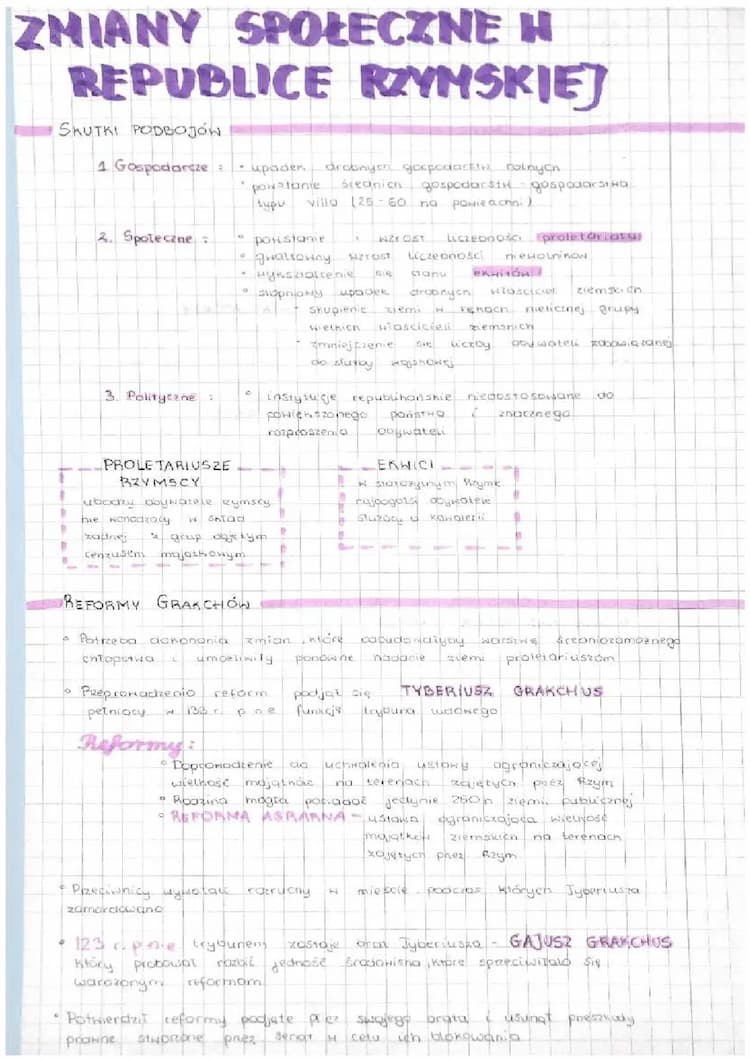 ZMIANY SPOŁECZNE W
REPUBLICE RZYMSKIEJ
SKUTKI PODBOJÓW
1 Gospodarcze : • upadek drobnych gospodarstw rolnych
• powstanie średnich gospodarstw - gospodarstwa
typu villa (25-60 ha powierzchni)
2. Społeczne : • powstanie i wzrost liczebności proletariatu
• gwałtowny wzrost liczebności niewolników
• wykształcenie się stanu ekwitów
• stopniowy upadek drobnych właścicieli ziemskich
- skupienie ziemi w rękach nielicznej grupy
wielkich właścicieli ziemskich
- zmniejszenie się liczby obywateli zobowiązanej
do służby wojskowej
3. Polityczne : • instytucje republikańskie niedostosowane do
powiększonego państwa i znacznego
rozproszenia obywateli
PROLETARIUSZE
RZYMSCY
ubodzy obywatele rzymscy
nie wchodzący w skład
żadnej z grup objętym
cenzusem majątkowym
EKWICI
w starożytnym Rzymie
najbogatsi obywatele
służący w kawalerii
REFORMY GRAKCHÓW
• Potrzeba dokonania zmian, które odbudowałyby warstwę średniozamożnego
chłopstwa i umożliwiły ponowne nadanie ziemi proletariuszom
• Przeprowadzenia reform podjął się TYBERIUSZ GRAKCHUS
pełniący w 133 r. p.n.e funkcję trybuna ludowego
Reformy:
• Doprowadzenie do uchwalenia ustawy ograniczającej
wielkość majątków na terenach zajętych przez Rzym
• Rodzina mogła posiadać jedynie 250 h ziemi publicznej
• REFORMA AGRARNA - ustawa ograniczająca wielkość
majątków ziemskich na terenach
zajętych przez Rzym
• Przeciwnicy wywołali rozruchy w mieście, podczas których Tyberiusza
zamordowano
• 123 r. p.n.e trybunem zostaje brat Tyberiusza - GAJUSZ GRAKCHUS
który próbował rozbić jedność środowiska, które sprzeciwiało się
wdrożonym reformom
• Potwierdził reformy podjęte przez swojego brata i usunął przeszkody
prawne stworzone przez senat w celu ich blokowania